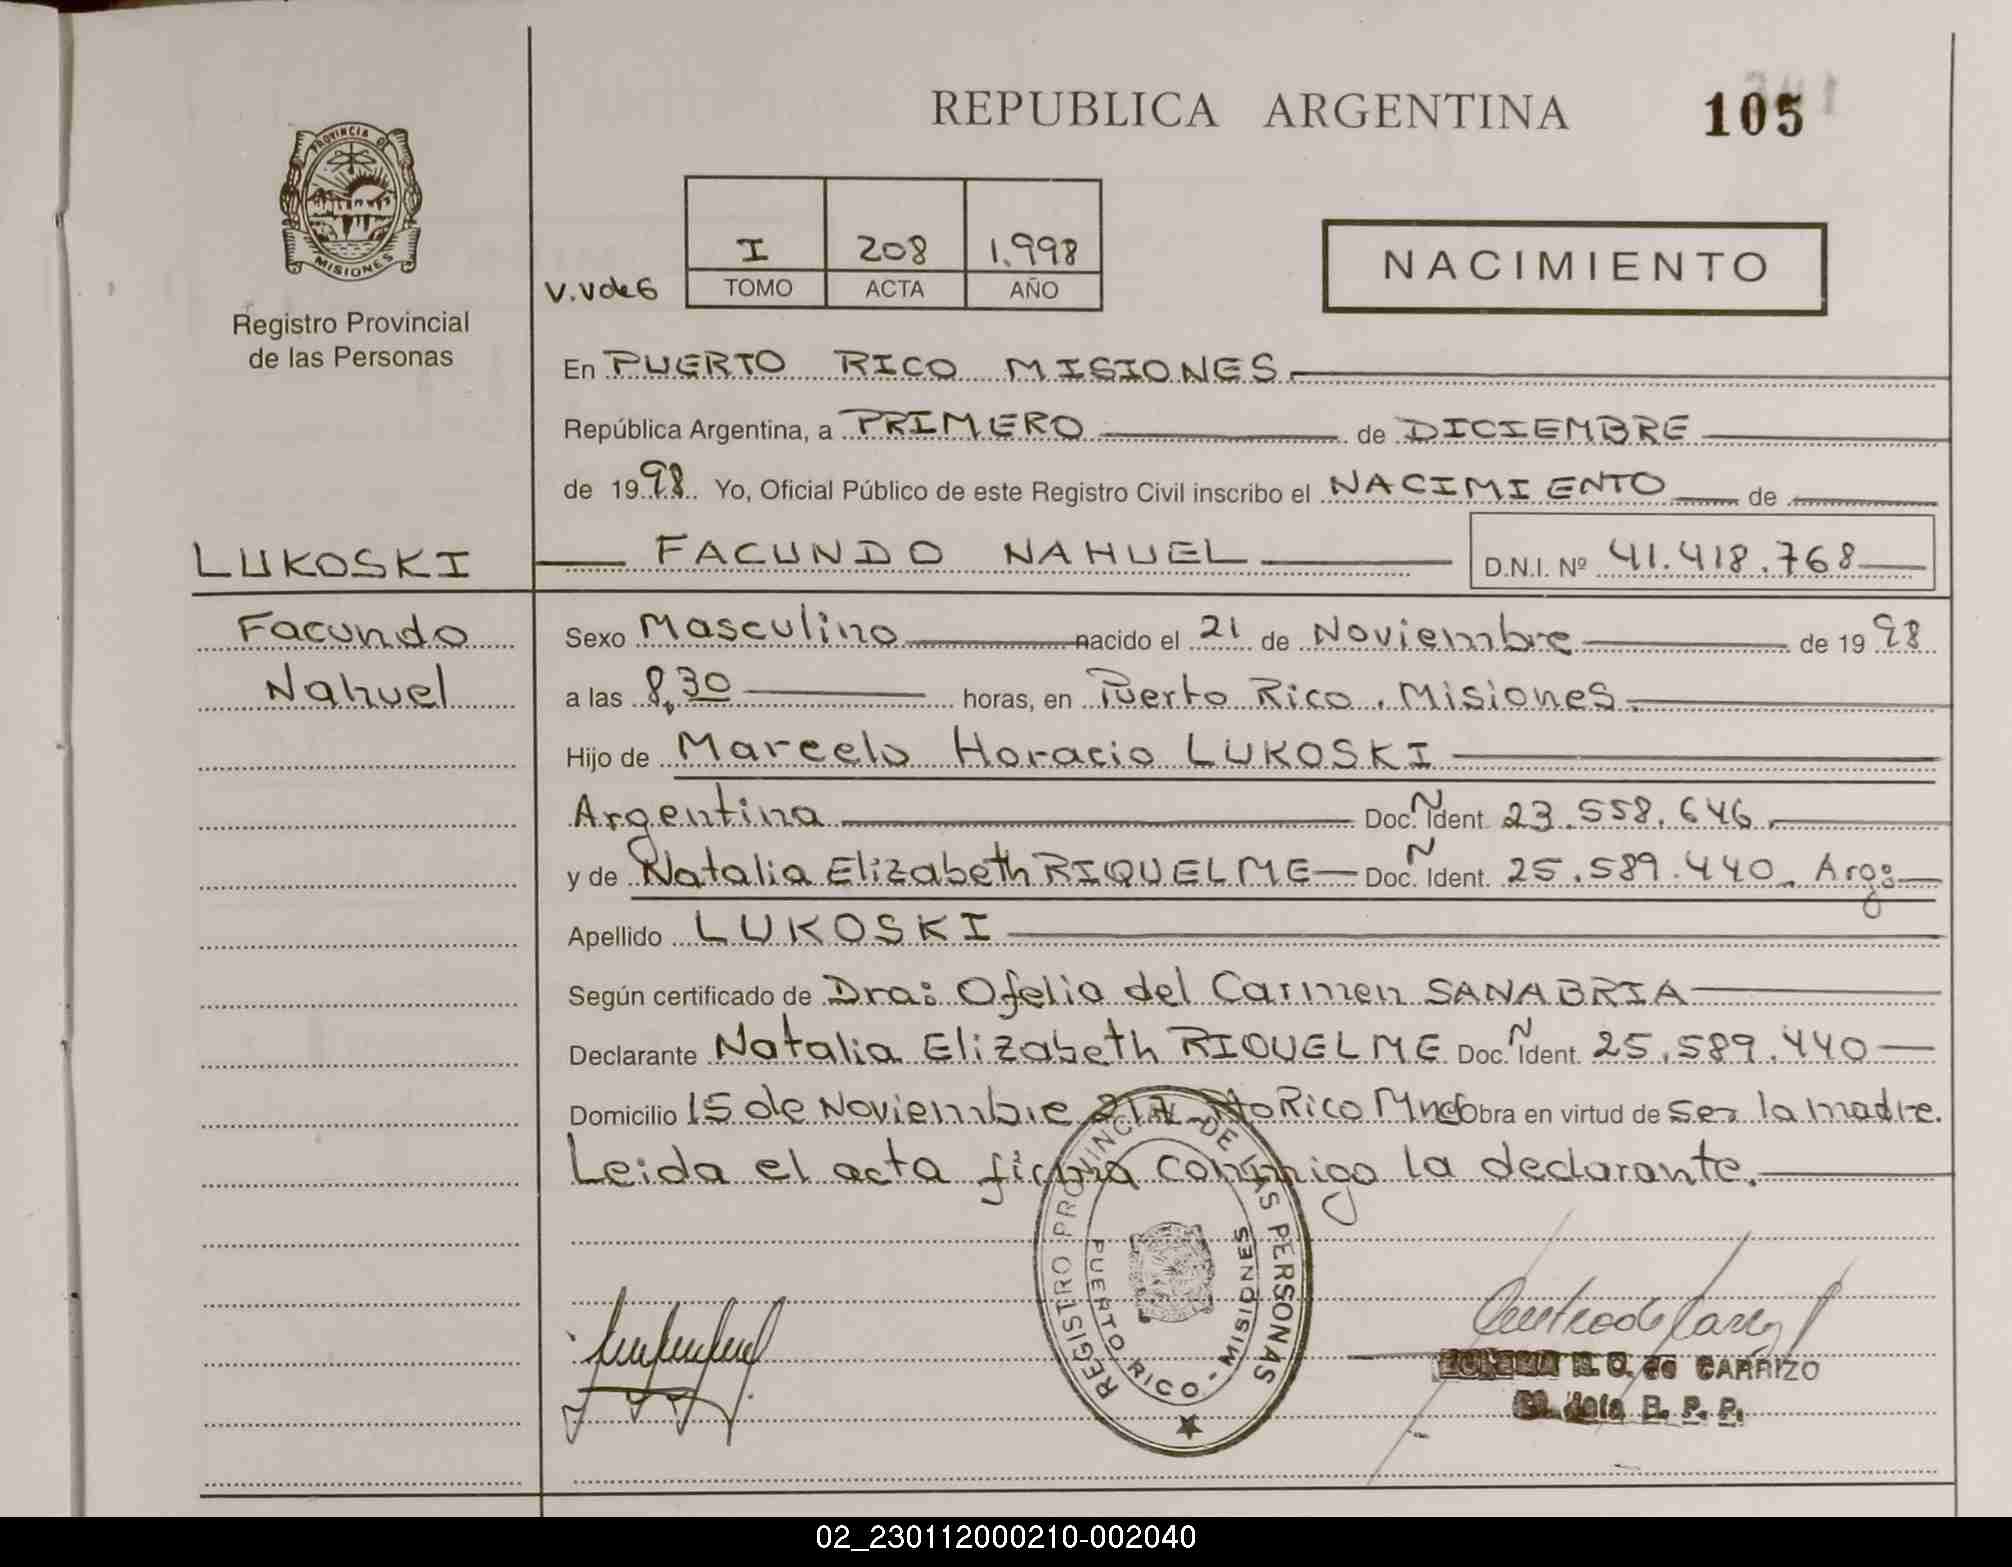 REPUBLICA ARGENTINA 105
PROVINCIA DE
MISIONES
Registro Provincial
de las Personas
V.V de G
I 208 1.998
TOMO ACTA AÑO
NACIMIENTO
En PUERTO RICO MISIONES
República Argentina, a PRIMERO de DICIEMBRE
de 1998 Yo, Oficial Público de este Registro Civil inscribo el NACIMIENTO de
LUKOSKI FACUNDO NAHUEL D.N.I. Nº 41.418.768
Facundo Sexo Masculino nacido el 21 de Noviembre de 1998
Nahuel a las 8,30 horas, en Puerto Rico. Misiones.
Hijo de Marcelo Horacio LUKOSKI
Argentina Doc. Ñ Ident. 23.558.646
y de Natalia Elizabeth RIQUELME Doc. Ñ Ident. 25.589.440. Arg:
Apellido LUKOSKI
Según certificado de Dra: Ofelia del Carmen SANABRIA
Declarante Natalia Elizabeth RIQUELME Doc. Ñ Ident. 25.589.440
Domicilio 15 de Noviembre Rico Mnes Obra en virtud de ser la madre.
Leida el acta firma conmigo la declarante.
REGISTRO PROVINCIAL DE LAS PERSONAS
PUERTO RICO - MISIONES
de CARRIZO
R. P. P.
02_230112000210-002040